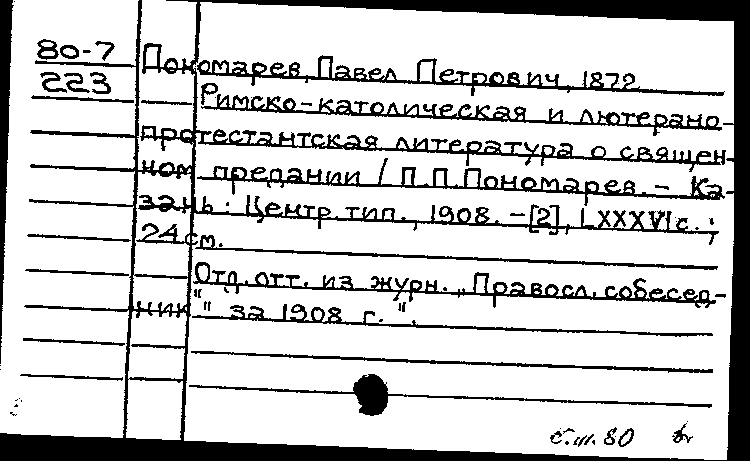 80-7
223
Пономарев, Павел Петрович, 1872
Римско-католическая и лютерано-
протестантская литература о священ-
ном предании / П.П.Пономарев. - Ка-
зань : Центр. тип., 1908. - [2], LXXXVI с. ;
24 см.
Отд. отт. из журн. „Правосл. собесед-
ник“ " за 1908 г. ".
80